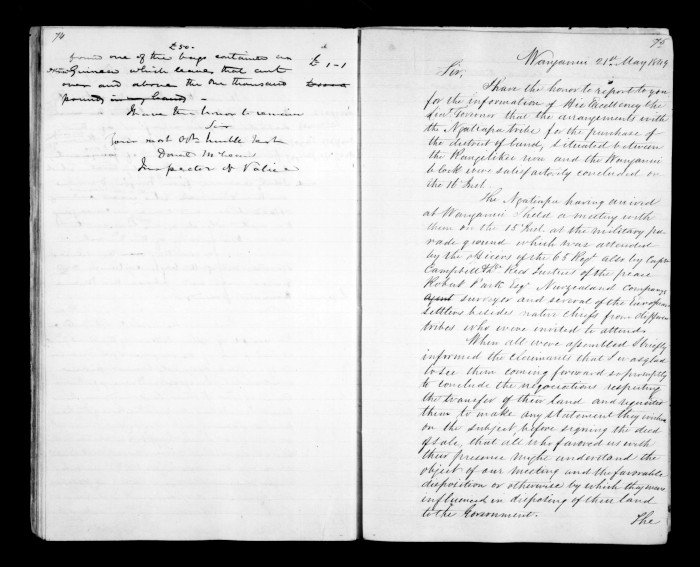 74
£50.-
found one of the bags contained an
Guinea which leaves that amt
over and above the One thousand
pounds in my hand -
£ 1-1
I have the honor to remain
Sir
Your most Obt humble Servt
Donald McLean
Inspector of Police
75
Wanganui 21st May 1849
Sir,
I have the honor to report to you
for the information of His Excellency the
Lieut Governor that the arrangements with
the Ngatiapa tribe for the purchase of
the district of land, situated between
the Rangitikei river and the Wanganui
block were satisfactorily concluded on
the 16 Inst.
The Ngatiapa having arrived
at Wanganui I held a meeting with
them on the 15 Inst. at the military pa-
rade ground which was attended
by the Officers of the 65 Regt also by Captn
Campbell & Dr Rees Justices of the peace
Robert Park Esqr Newzealand Companys
agent surveyor and several of the European
settlers besides native chiefs from different
tribes who were invited to attend.
When all were assembled I briefly
informed the claimants that I was glad
to see them coming forward so promptly
to conclude the negociations respecting
the transfer of their land and requested
them to make any statement they wished
on the subject, before signing the deed
of sale, that all who favored us with
their presence might understand the
object of our meeting and the favorable
disposition or otherwise by which they were
influenced in disposing of their land
to the Government.
The